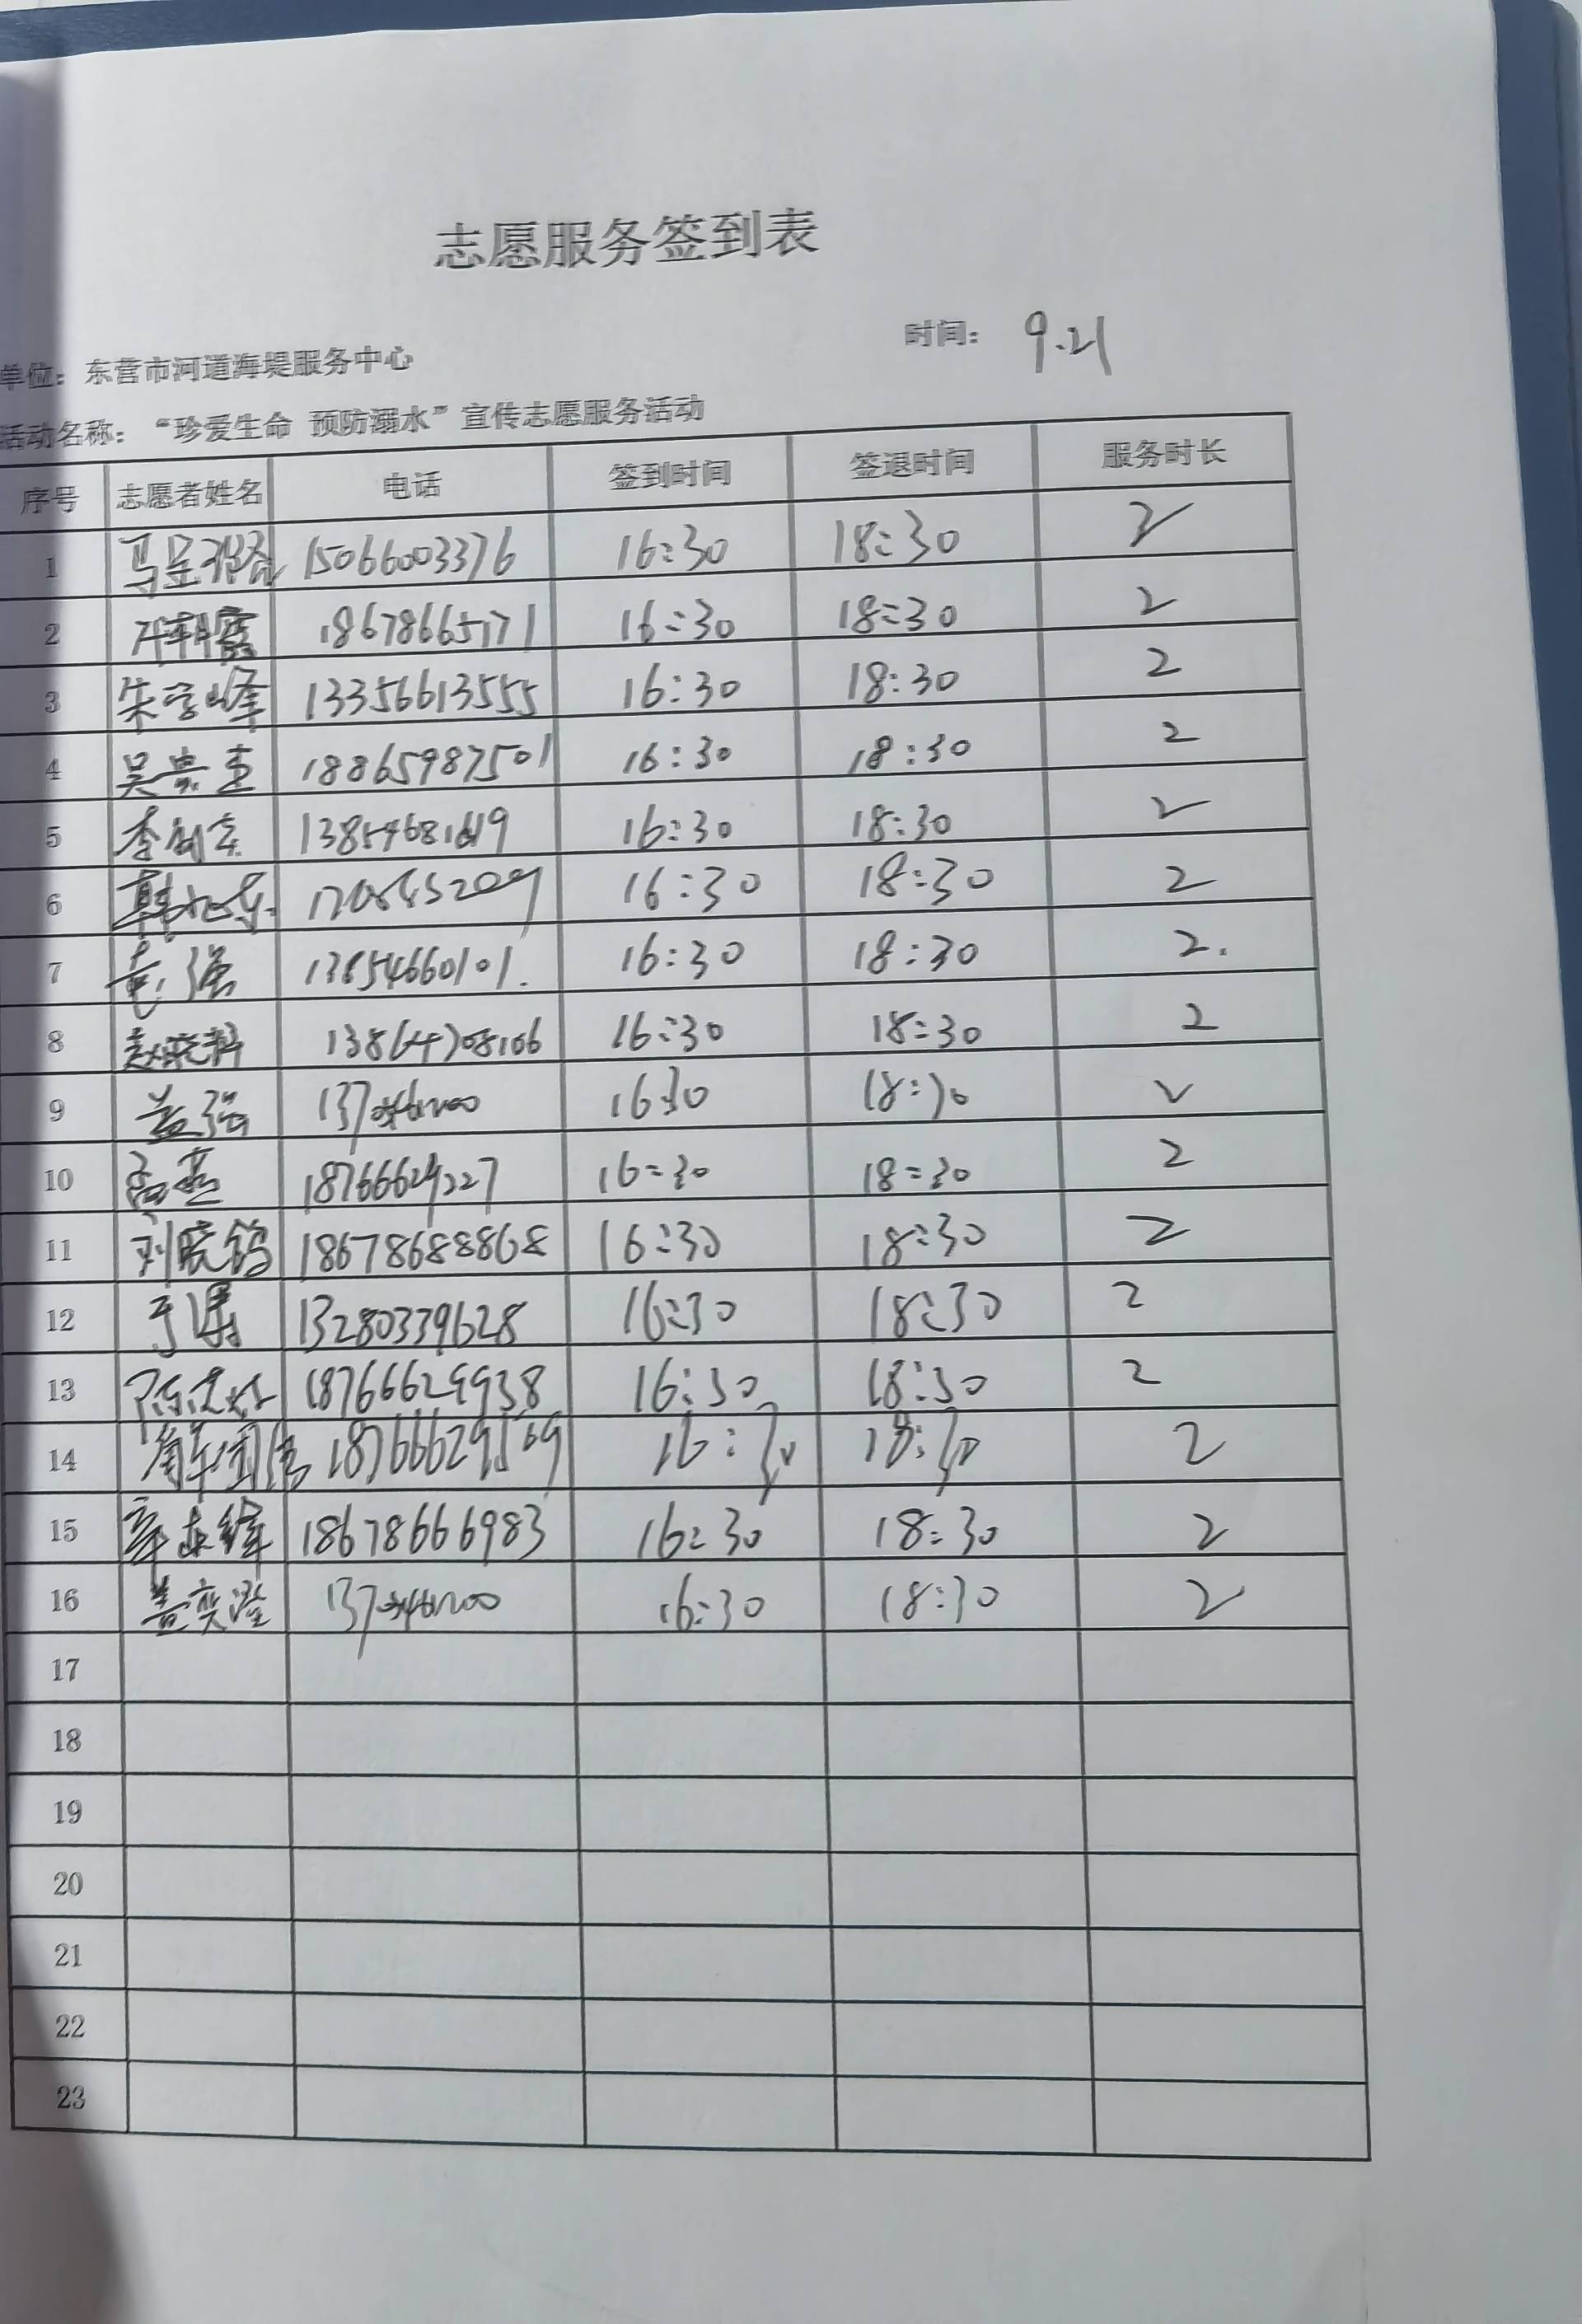 志愿服务签到表
时间： 9.21
单位：东营市河道海堤服务中心
活动名称：“珍爱生命 预防溺水”宣传志愿服务活动
序号 志愿者姓名 电话 签到时间 签退时间 服务时长
1 15066003376 16:30 18:30 2
2 18678665171 16:30 18:30 2
3 朱学峰 13356613555 16:30 18:30 2
4 18865987501 16:30 18:30 2
5 16:30 18:30 2
6 16:30 18:30 2
7 13854660101. 16:30 18:30 2.
8 16:30 18:30 2
9 盖强 1630 18:30 2
10 高燕 18766629227 16:30 18:30 2
11 刘晓鸽 18678688868 16:30 18:30 2
12 13280339628 16:30 18:30 2
13 18766629938 16:30 18:30 2
14 18766629569 16:30 18:30 2
15 18678666983 16:30 18:30 2
16 盖奕澄 16:30 18:30 2
17
18
19
20
21
22
23